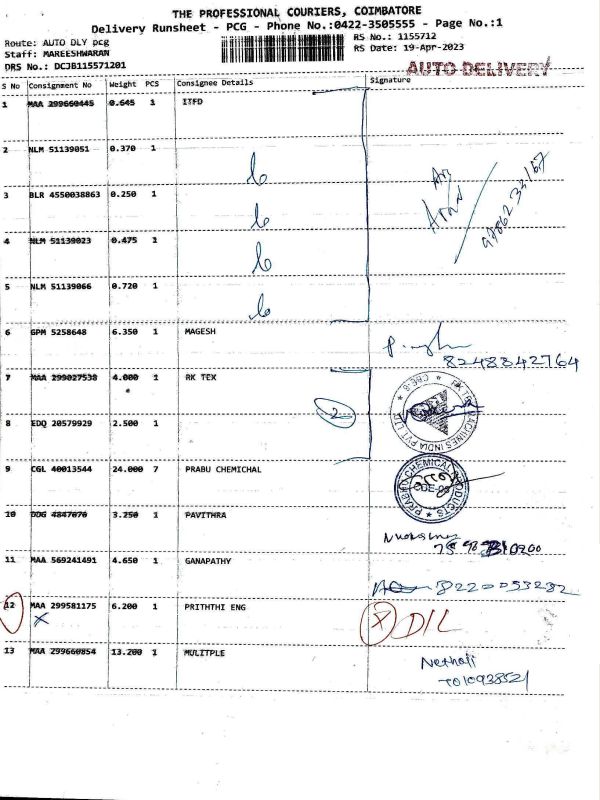 THE PROFESSIONAL COURIERS, COIMBATORE
Delivery Runsheet - PCG - Phone No.:0422-3505555 - Page No.:1
Route: AUTO DLY pcg
RS No.: 1155712
Staff: MAREESHWARAN
RS Date: 19-Apr-2023
DRS No.: DCJB115571201
AUTO DELIVERY
S No Consignment No Weight PCS Consignee Details Signature
1 MAA 299660445 0.645 1 ITFD
2 NLM 51139051 0.370 1
3 BLR 4550038863 0.250 1
4 NLM 51139023 0.475 1
5 NLM 51139066 0.720 1
6 GPM 5258648 6.350 1 MAGESH
8248842764
7 MAA 299027538 4.000 1 RK TEX
2
8 EDQ 20579929 2.500 1
9 CGL 40013544 24.000 7 PRABU CHEMICHAL
10 DDG 4847070 3.250 1 PAVITHRA
11 MAA 569241491 4.650 1 GANAPATHY
8220053282
12 MAA 299581175 6.200 1 PRITHTHI ENG
X
X DIL
13 MAA 299660854 13.200 1 MULITPLE
Nethaji